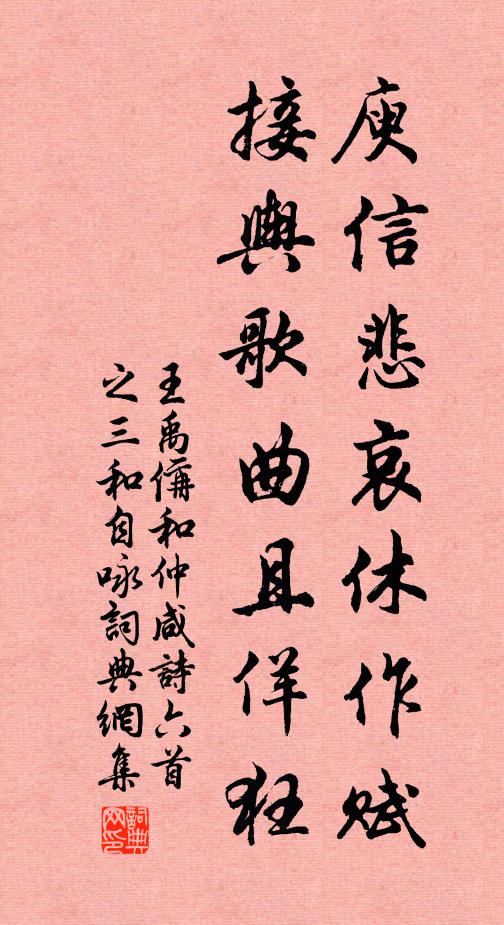 庾信悲哀休作賦
接輿歌曲且佯狂
王禹偁和仲咸詩六首
之三和自咏詞典網集
詞典
网印